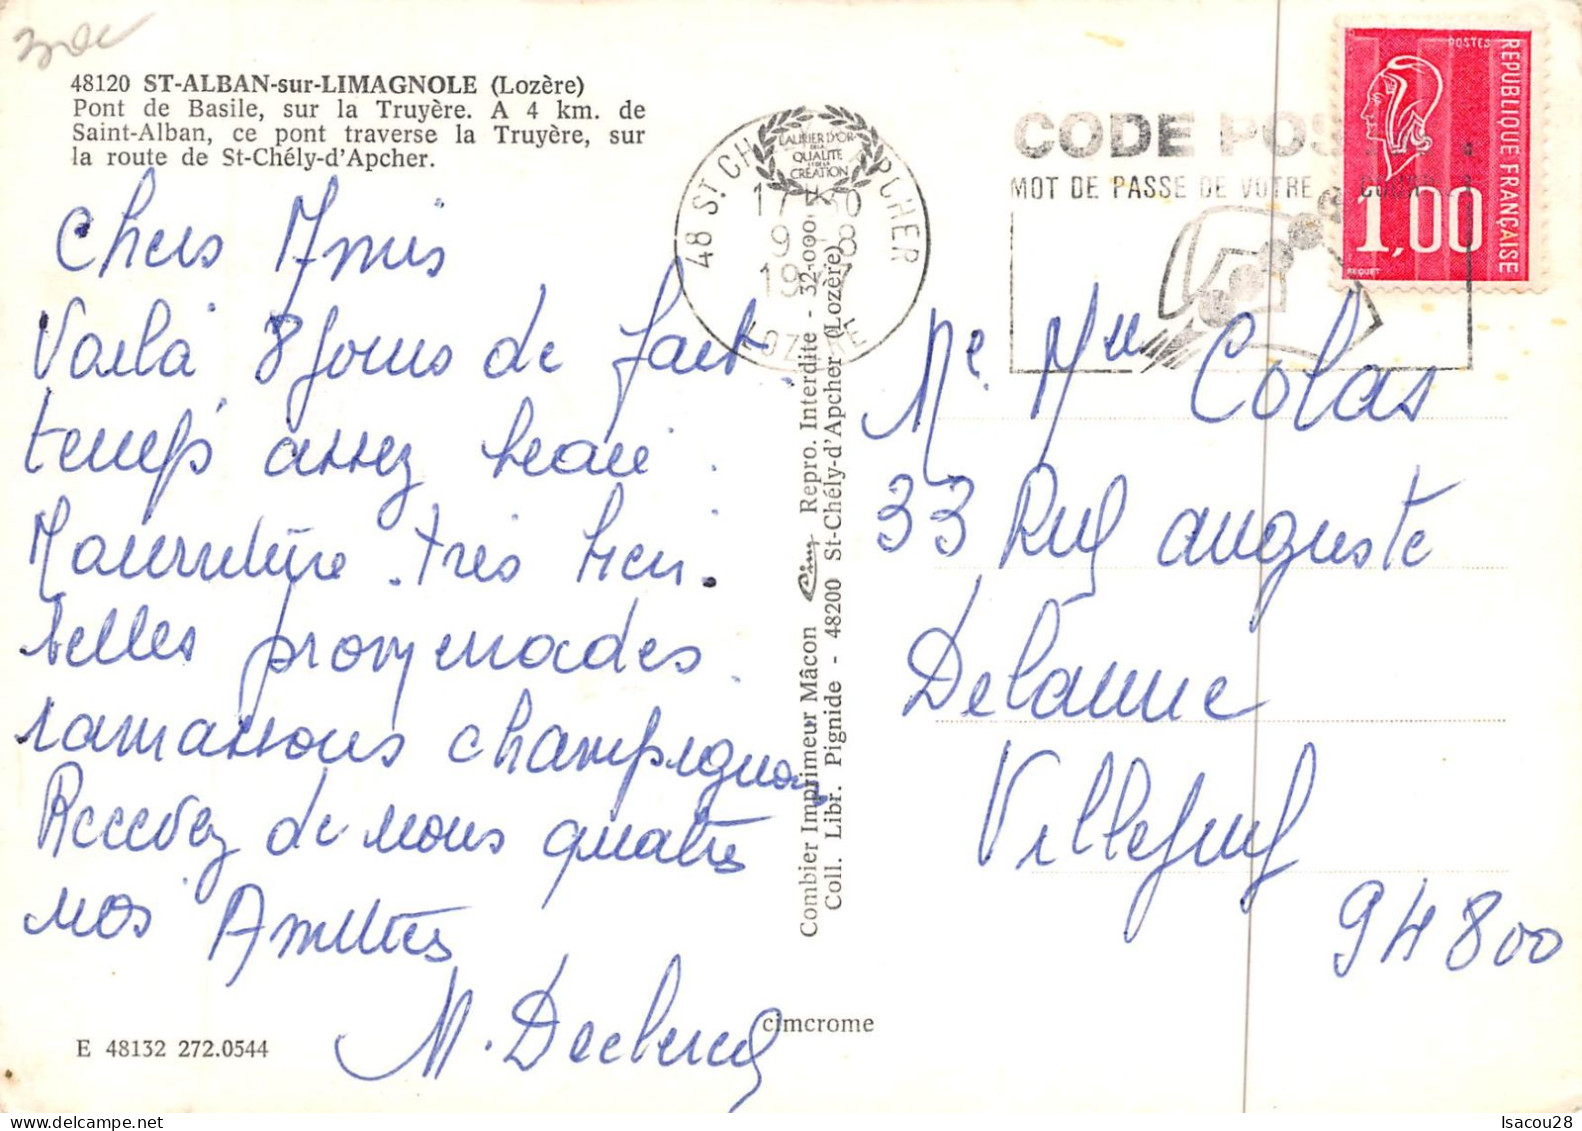 48120 ST-ALBAN-sur-LIMAGNOLE (Lozère)
Pont de Basile, sur la Truyère. A 4 km. de
Saint-Alban, ce pont traverse la Truyère, sur
la route de St-Chély-d'Apcher.
Chers Amis
Voilà 8 jours de fait
temps assez beau.
Nourriture très bien.
belles promenades
ramassons champignons
Recevez de nous quatre
nos Amitiés
M. Declercq
E 48132 272.0544
cimcrome
Combier Imprimeur Mâcon Cim Repro. Interdite - 32-000
Coll. Libr. Pignide - 48200 St-Chély-d'Apcher (Lozère)
LAURIER D'OR
DE LA
QUALITÉ
ET DE LA
CRÉATION
48 ST CH PCHER
17 30
9 8
19 7
LOZERE
CODE POS
MOT DE PASSE DE VOTRE
POSTES
REPUBLIQUE FRANÇAISE
1,00
BEQUET
Mr. Mme Colas
33 Rue auguste
Delaune
Villejuif
94800
Isacou28